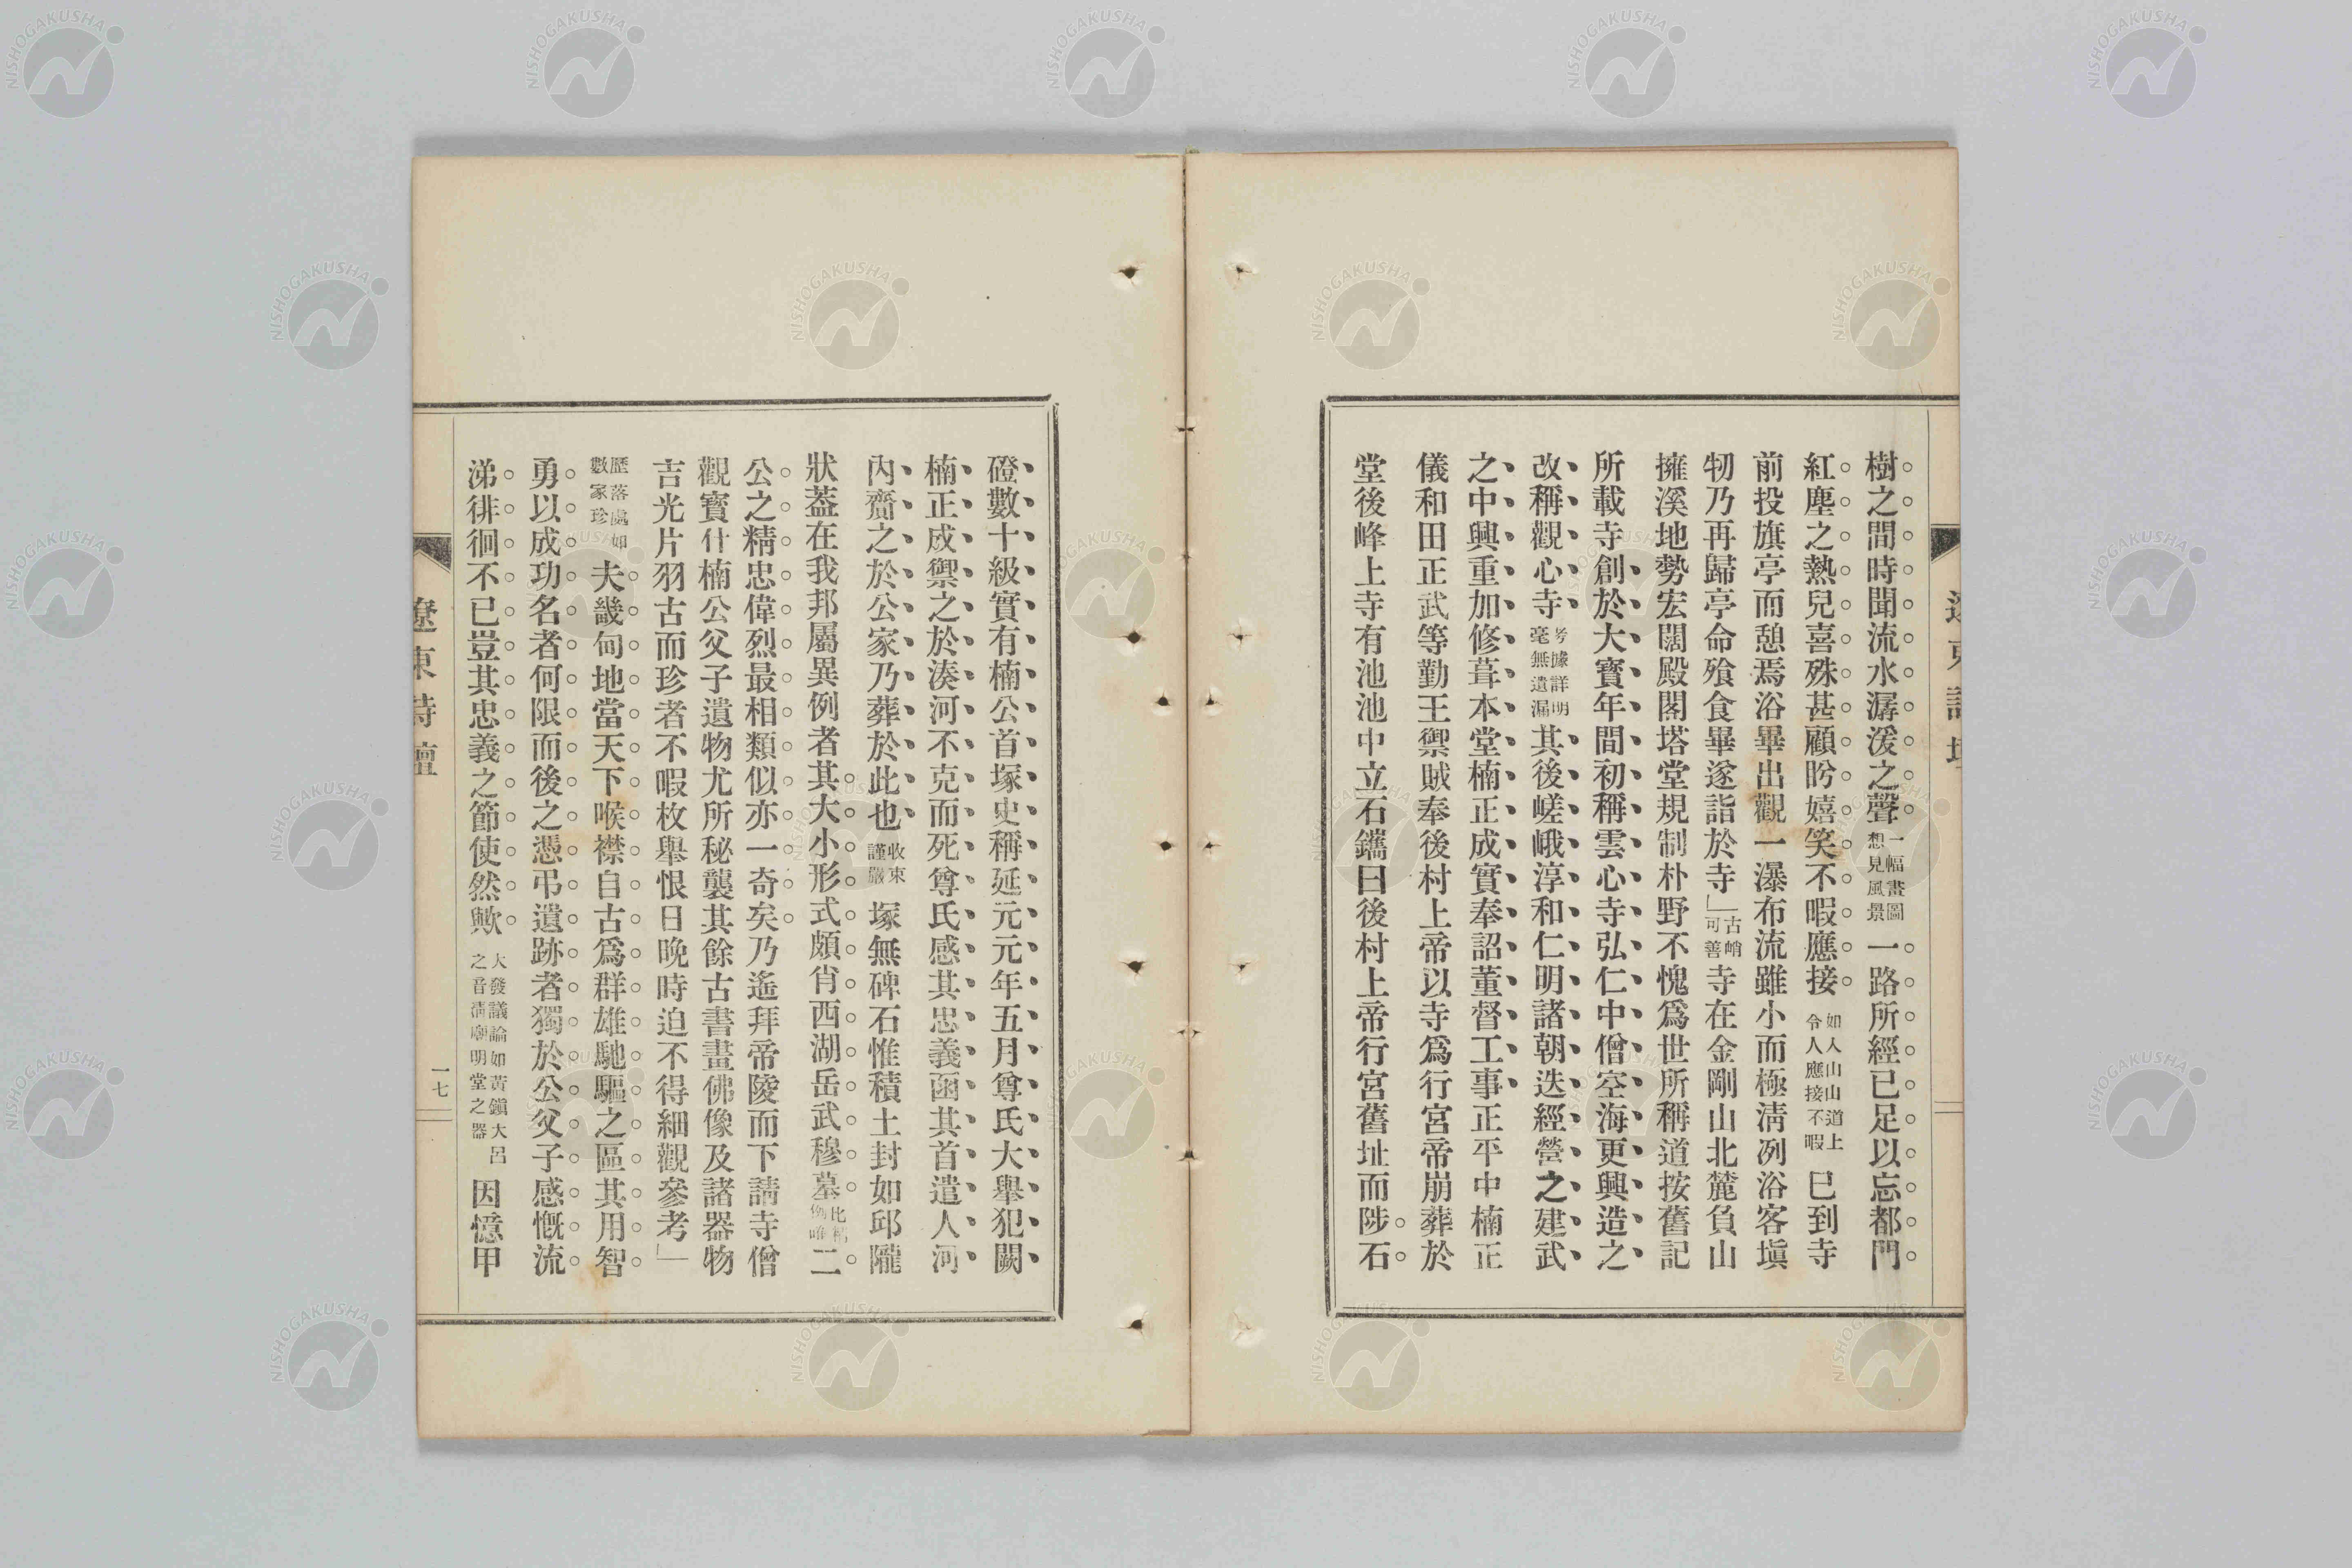 樹之間時聞流水潺湲之聲一幅畫圖想見風景一路所經已足以忘都門
紅塵之熱兒喜殊甚顧眄嬉笑不暇應接如人山山道上令人應接不暇巳到寺
前投旗亭而憩焉浴畢出觀一瀑布流雖小而極淸冽浴客塡
牣乃再歸亭命飱食畢遂詣於寺」古峭可善寺在金剛山北麓負山
擁溪地勢宏闊殿閣塔堂規制朴野不愧爲世所稱道按舊記
所載寺創於大寶年間初稱雲心寺弘仁中僧空海更興造之
改稱觀心寺考據詳明毫無遺漏其後嵯峨淳和仁明諸朝迭經營之建武
之中興重加修葺本堂楠正成實奉詔董督工事正平中楠正
儀和田正武等勤王禦賊奉後村上帝以寺爲行宮帝崩葬於
堂後峰上寺有池池中立石鐫曰後村上帝行宮舊址而陟石
磴數十級實有楠公首塚史稱延元元年五月尊氏大擧犯闕
楠正成禦之於湊河不克而死尊氏感其忠義函其首遣人河
內齎之於公家乃葬於此也收束謹嚴塚無碑石惟積土封如邱隴
狀葢在我邦屬異例者其大小形式頗肖西湖岳武穆墓二
公之精忠偉烈最相類似亦一奇矣乃遙拜帝陵而下請寺僧
觀寶什楠公父子遺物尤所秘襲其餘古書畫佛像及諸器物
吉光片羽古而珍者不暇枚擧恨日晚時迫不得細觀參考」
歷落處如數家珍夫畿甸地當天下喉襟自古爲群雄馳驅之區其用智
勇以成功名者何限而後之憑弔遺跡者獨於公父子感慨流
涕徘徊不已豈其忠義之節使然歟大發議論如黃鐘大呂之音淸廟明堂之器因憶甲
遼東詩壇
一七